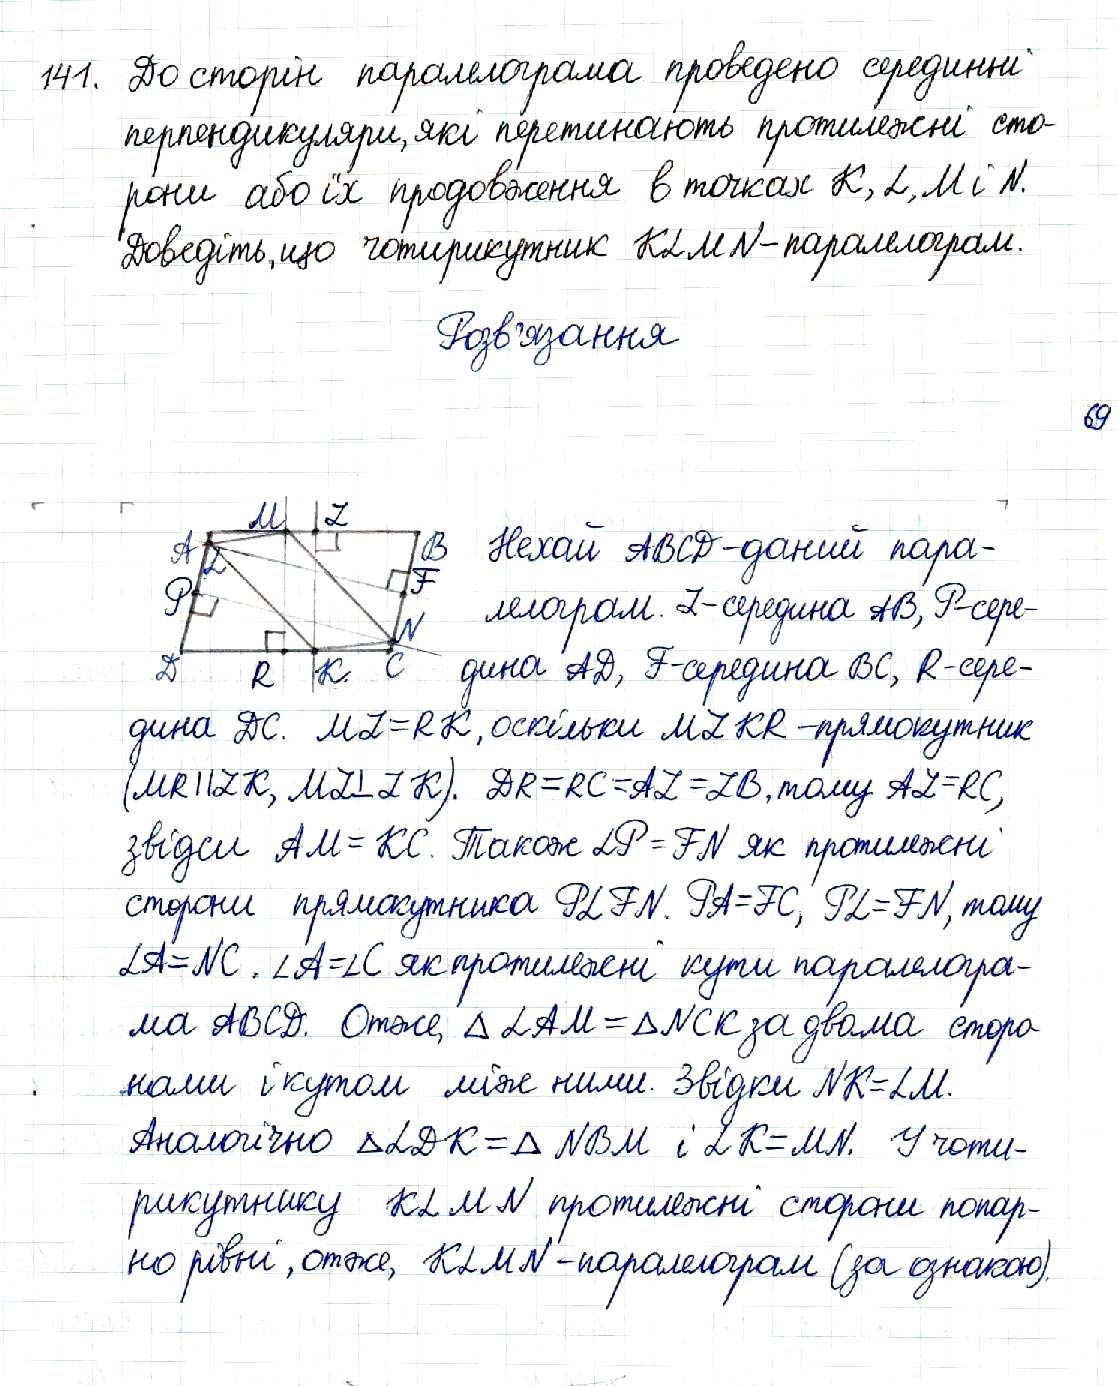 141. До сторін паралелограма проведено серединні
перпендикуляри, які перетинають протилежні сто-
рони або їх продовження в точках K, L, M і N.
Доведіть, що чотирикутник KLMN-паралелограм.
Розв'язання
69
M Z
A L B
P F
N
D R K C
Нехай ABCD-даний пара-
лелограм. Z-середина AB, P-сере-
дина AD, F-середина BC, R-сере-
дина DC. MZ=RK, оскільки MZKR-прямокутник
(MR||ZK, MZ⊥ZK). DR=RC=AZ=ZB, тому AZ=RC,
звідси AM=KC. Також LP=FN як протилежні
сторони прямокутника PLFN. PA=FC, PL=FN, тому
LA=NC. ∠A=∠C як протилежні кути паралелогра-
ма ABCD. Отже, △LAM=△NCK за двома сторо
нами і кутом між ними. Звідки NK=LM.
Аналогічно △LDK=△NBM і LK=MN. У чоти-
рикутнику KLMN протилежні сторони попар-
но рівні, отже, KLMN-паралелограм (за ознакою).